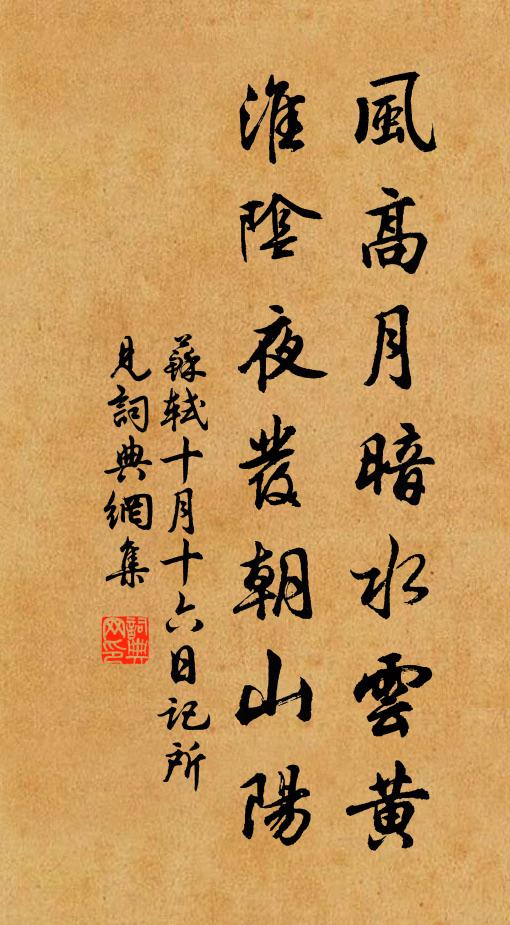 風高月暗水雲黄
淮陰夜發朝山陽
蘇軾十月十六日記所
見詞典網集
詞典网印